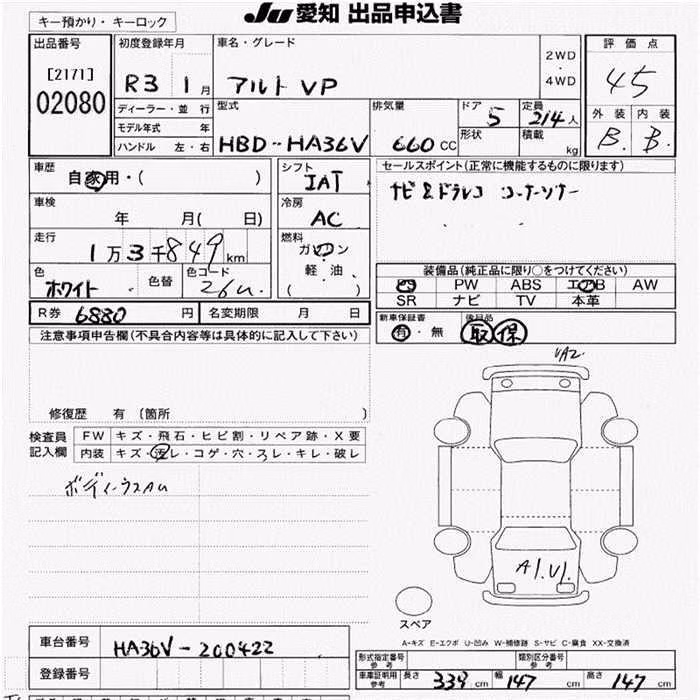 キー預かり・キーロック
JU 愛知 出品申込書
出品番号
[2171]
02080
初度登録年月
R3 1月
ディーラー・並 行
モデル年式 年
ハンドル 左・右
車名・グレード
アルト VP
2WD
・
4WD
型式
HBD-HA36V
排気量
660 CC
ドア
5
形状
定員
2/4人
積載
kg
評価点
45
外装 内装
B. B.
車歴
自家用・( )
車検
年 月( 日)
走行
1万3千849km
色
ホワイト
色替
色コード
26U
シフト
IAT
冷房
AC
燃料
ガソリン
軽 油
( )
セールスポイント(正常に機能するものに限ります)
ナビ &ドラレコ コーナーソナー
装備品(純正品に限り○をつけてください)
PS PW ABS エアB AW
SR ナビ TV 本革
R券 6880 円
名変期限 月 日
新車保証書
有・無
後日品
取 保
注意事項申告欄(不具合内容等は具体的に記入して下さい)
修復歴 有 (箇所 )
検査員
記入欄
FW キズ・飛石・ヒビ割・リペア跡・X要
内装 キズ・汚レ・コゲ・穴・スレ・キレ・破レ
ボディーウスAU
UA2
A1.U1.
スペア
A-キズ E-エクボ U-凹み W-補修跡 S-サビ C-腐食 XX-交換済
車台番号 HA36V-200422
登録番号
形式指定番号
参考
類別区分番号
参考
車庫証明用
参考
長さ 339 cm 幅 147 cm 高さ 147 cm